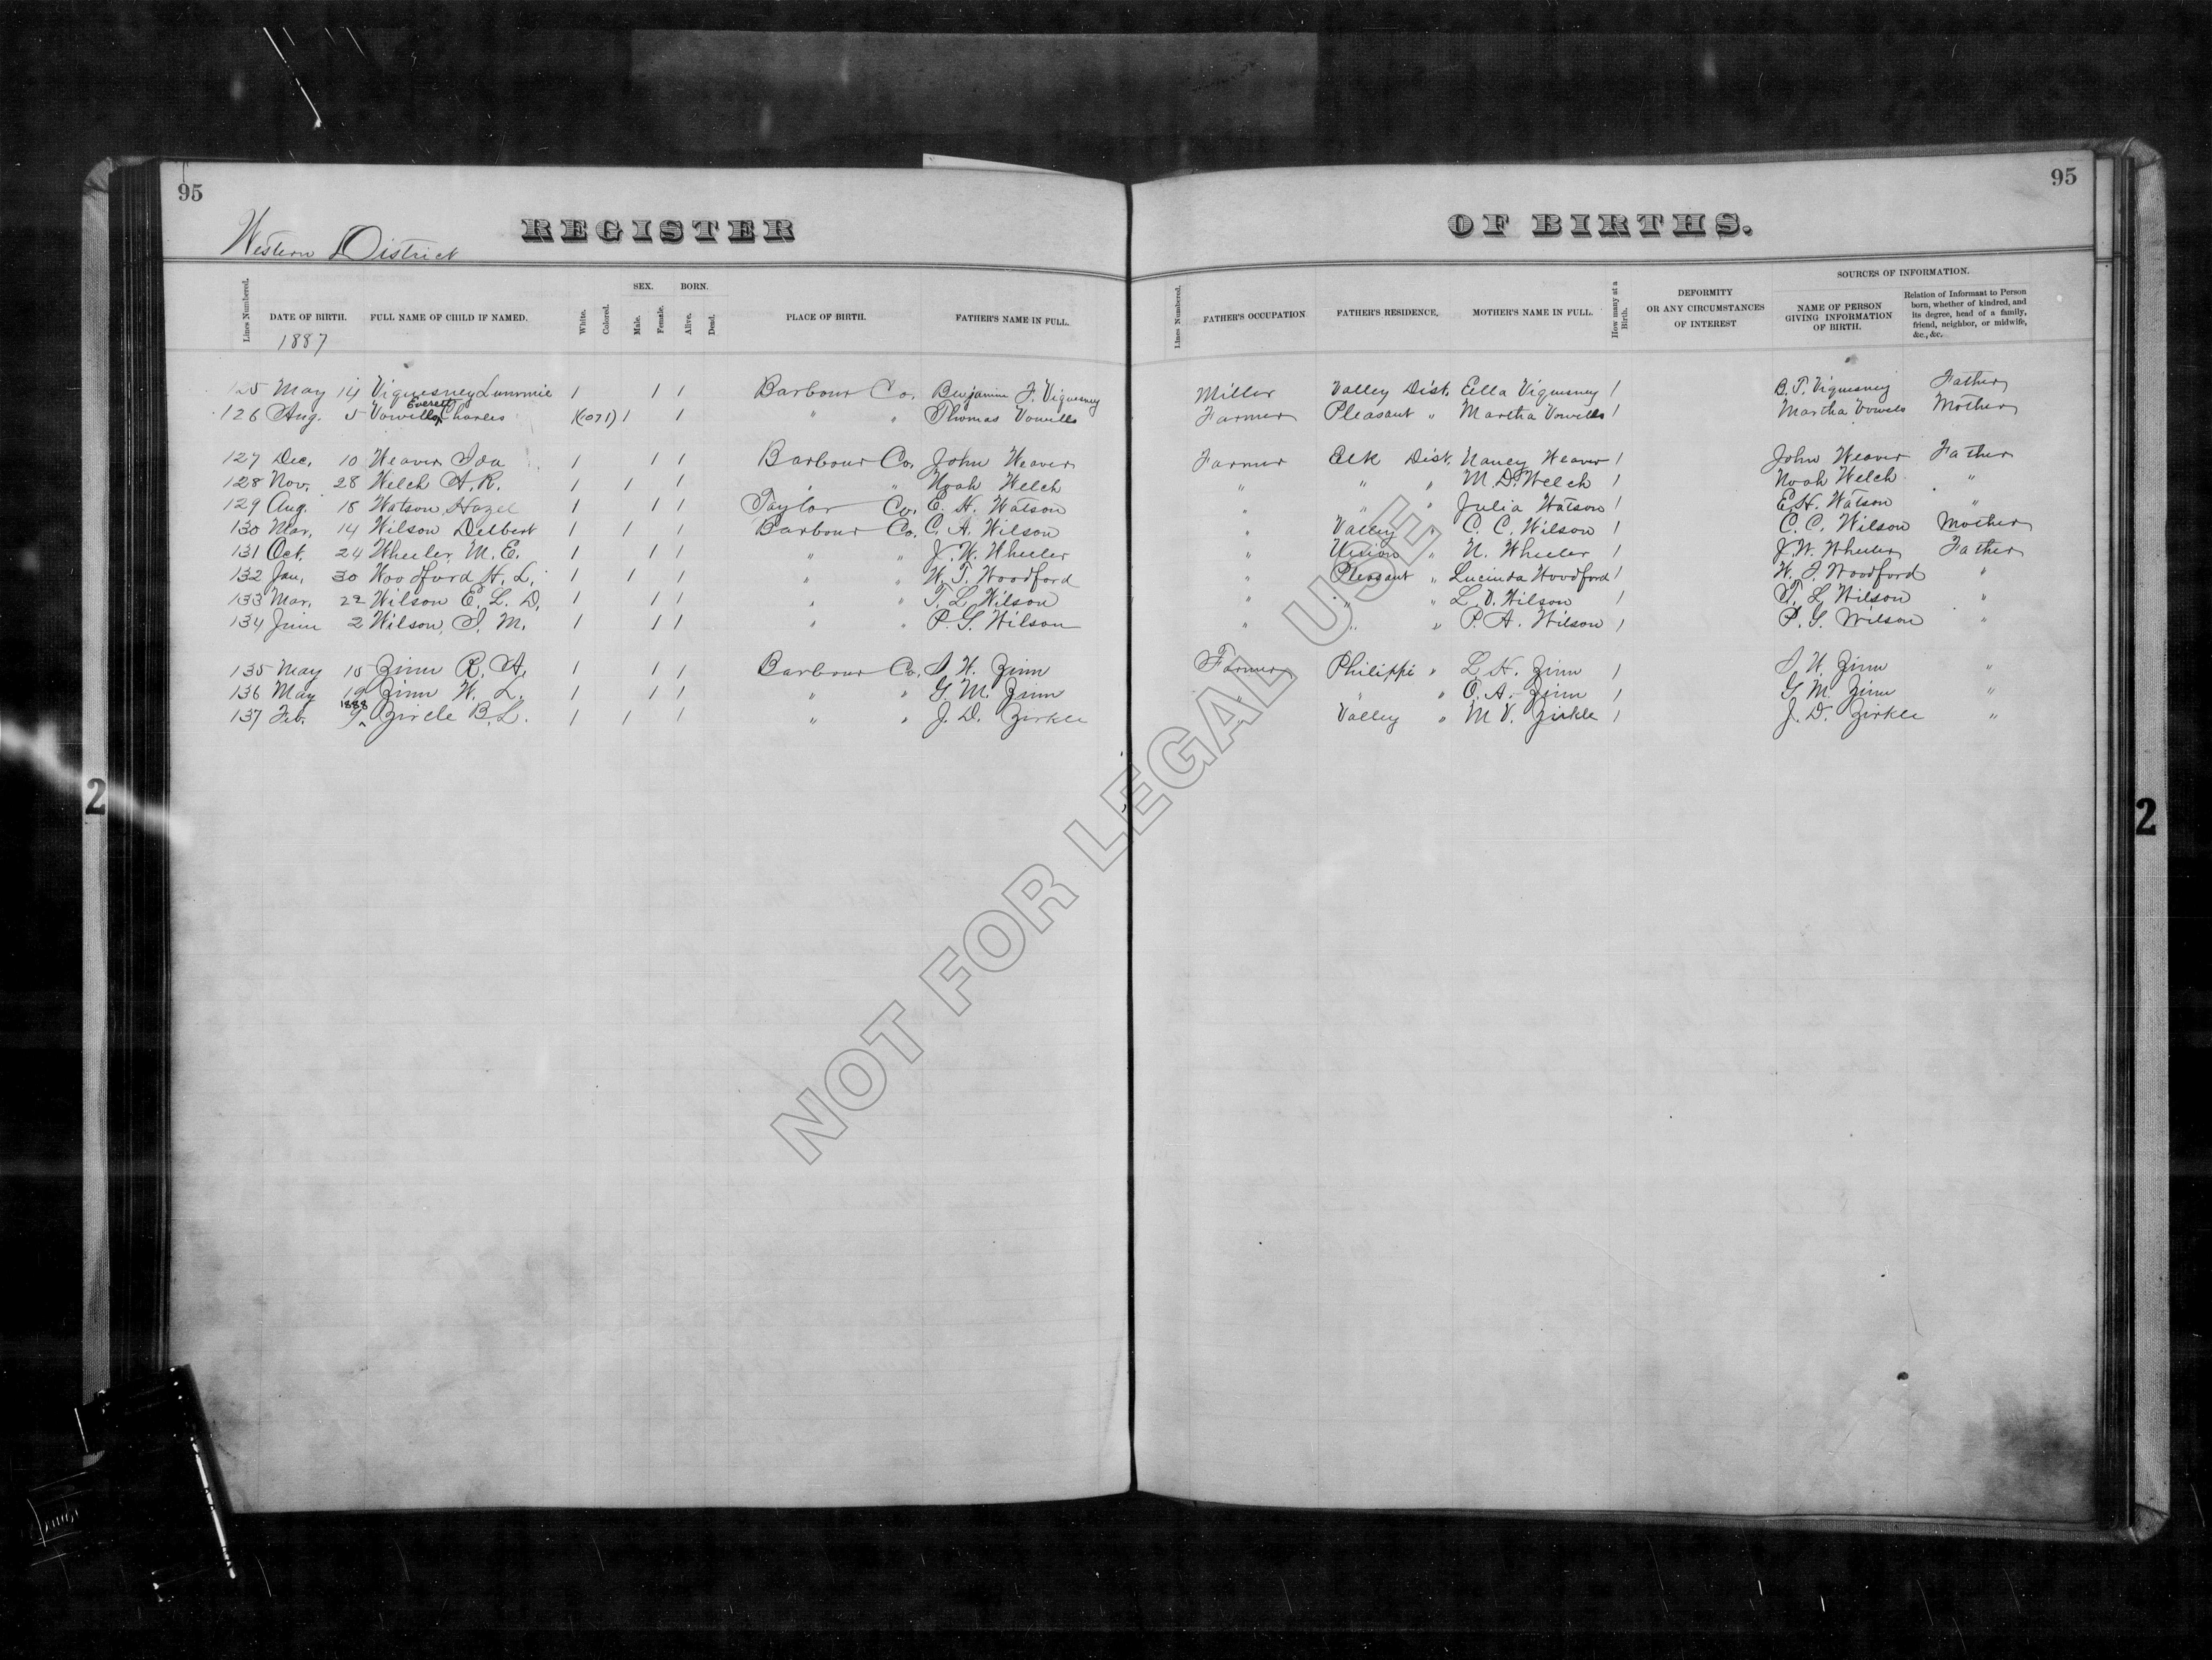 95
95
Western District
REGISTER
OF BIRTHS.
Lines Numbered.
DATE OF BIRTH.
1887
FULL NAME OF CHILD IF NAMED.
White.
Colored.
SEX.
Male.
Female.
BORN.
Alive.
Dead.
PLACE OF BIRTH.
FATHER'S NAME IN FULL.
Lines Numbered.
FATHER'S OCCUPATION
FATHER'S RESIDENCE,
MOTHER'S NAME IN FULL.
How many at a Birth.
DEFORMITY
OR ANY CIRCUMSTANCES
OF INTEREST
SOURCES OF INFORMATION.
NAME OF PERSON
GIVING INFORMATION
OF BIRTH.
Relation of Informant to Person
born, whether of kindred, and
its degree, head of a family,
friend, neighbor, or midwife,
&c., &c.
125 May 14 Viquesney 1 1 1 Barbour Co. Benjamin F. Viquesney Miller Valley Dist. Ella Viquesney 1 B. F. Viquesney Father
Everett
126 Aug. 5 Vowells Charles 1 (1071) 1 1 " " Thomas Vowells Farmer Pleasant " Martha Vowells 1 Martha Vowels Mother
127 Dec. 10 Weaver Ida 1 1 1 Barbour Co. John Weaver Farmer Elk Dist. Nancy Weaver 1 John Weaver Father
128 Nov. 28 Welch A. R. 1 1 1 " " Noah Welch " " " M. D. Welch 1 Noah Welch "
129 Aug. 18 Watson Hazel 1 1 1 Taylor Co. E. H. Watson " " " Julia Watson 1 E. H. Watson "
130 Mar. 14 Wilson Delbert 1 1 1 Barbour Co. C. A. Wilson " Valley " C. C. Wilson 1 C. C. Wilson Mother
131 Oct. 24 Wheeler M. E. 1 1 1 " " J. W. Wheeler " Union " N. Wheeler 1 J. W. Wheeler Father
132 Jan. 30 Woodford H. L. 1 1 1 " " W. T. Woodford " Pleasant " Lucinda Woodford 1 W. T. Woodford "
133 Mar. 22 Wilson E. L. D. 1 1 1 " " T. L. Wilson " " " L. V. Wilson 1 T. L. Wilson "
134 June 2 Wilson, I. M. 1 1 1 " " P. G. Wilson " " " P. A. Wilson 1 P. G. Wilson "
135 May 15 Zinn R. A. 1 1 1 Barbour Co. S. W. Zinn Farmer Philippi " L. H. Zinn 1 S. W. Zinn "
136 May 19 Zinn W. L. 1 1 1 " " G. M. Zinn " " " O. A. Zinn 1 G. M. Zinn "
1888
137 Feb. 9 Zircle B. L. 1 1 1 " " J. D. Zirkle " Valley " M. V. Zirkle 1 J. D. Zirkle "
2
2
NOT FOR LEGAL USE